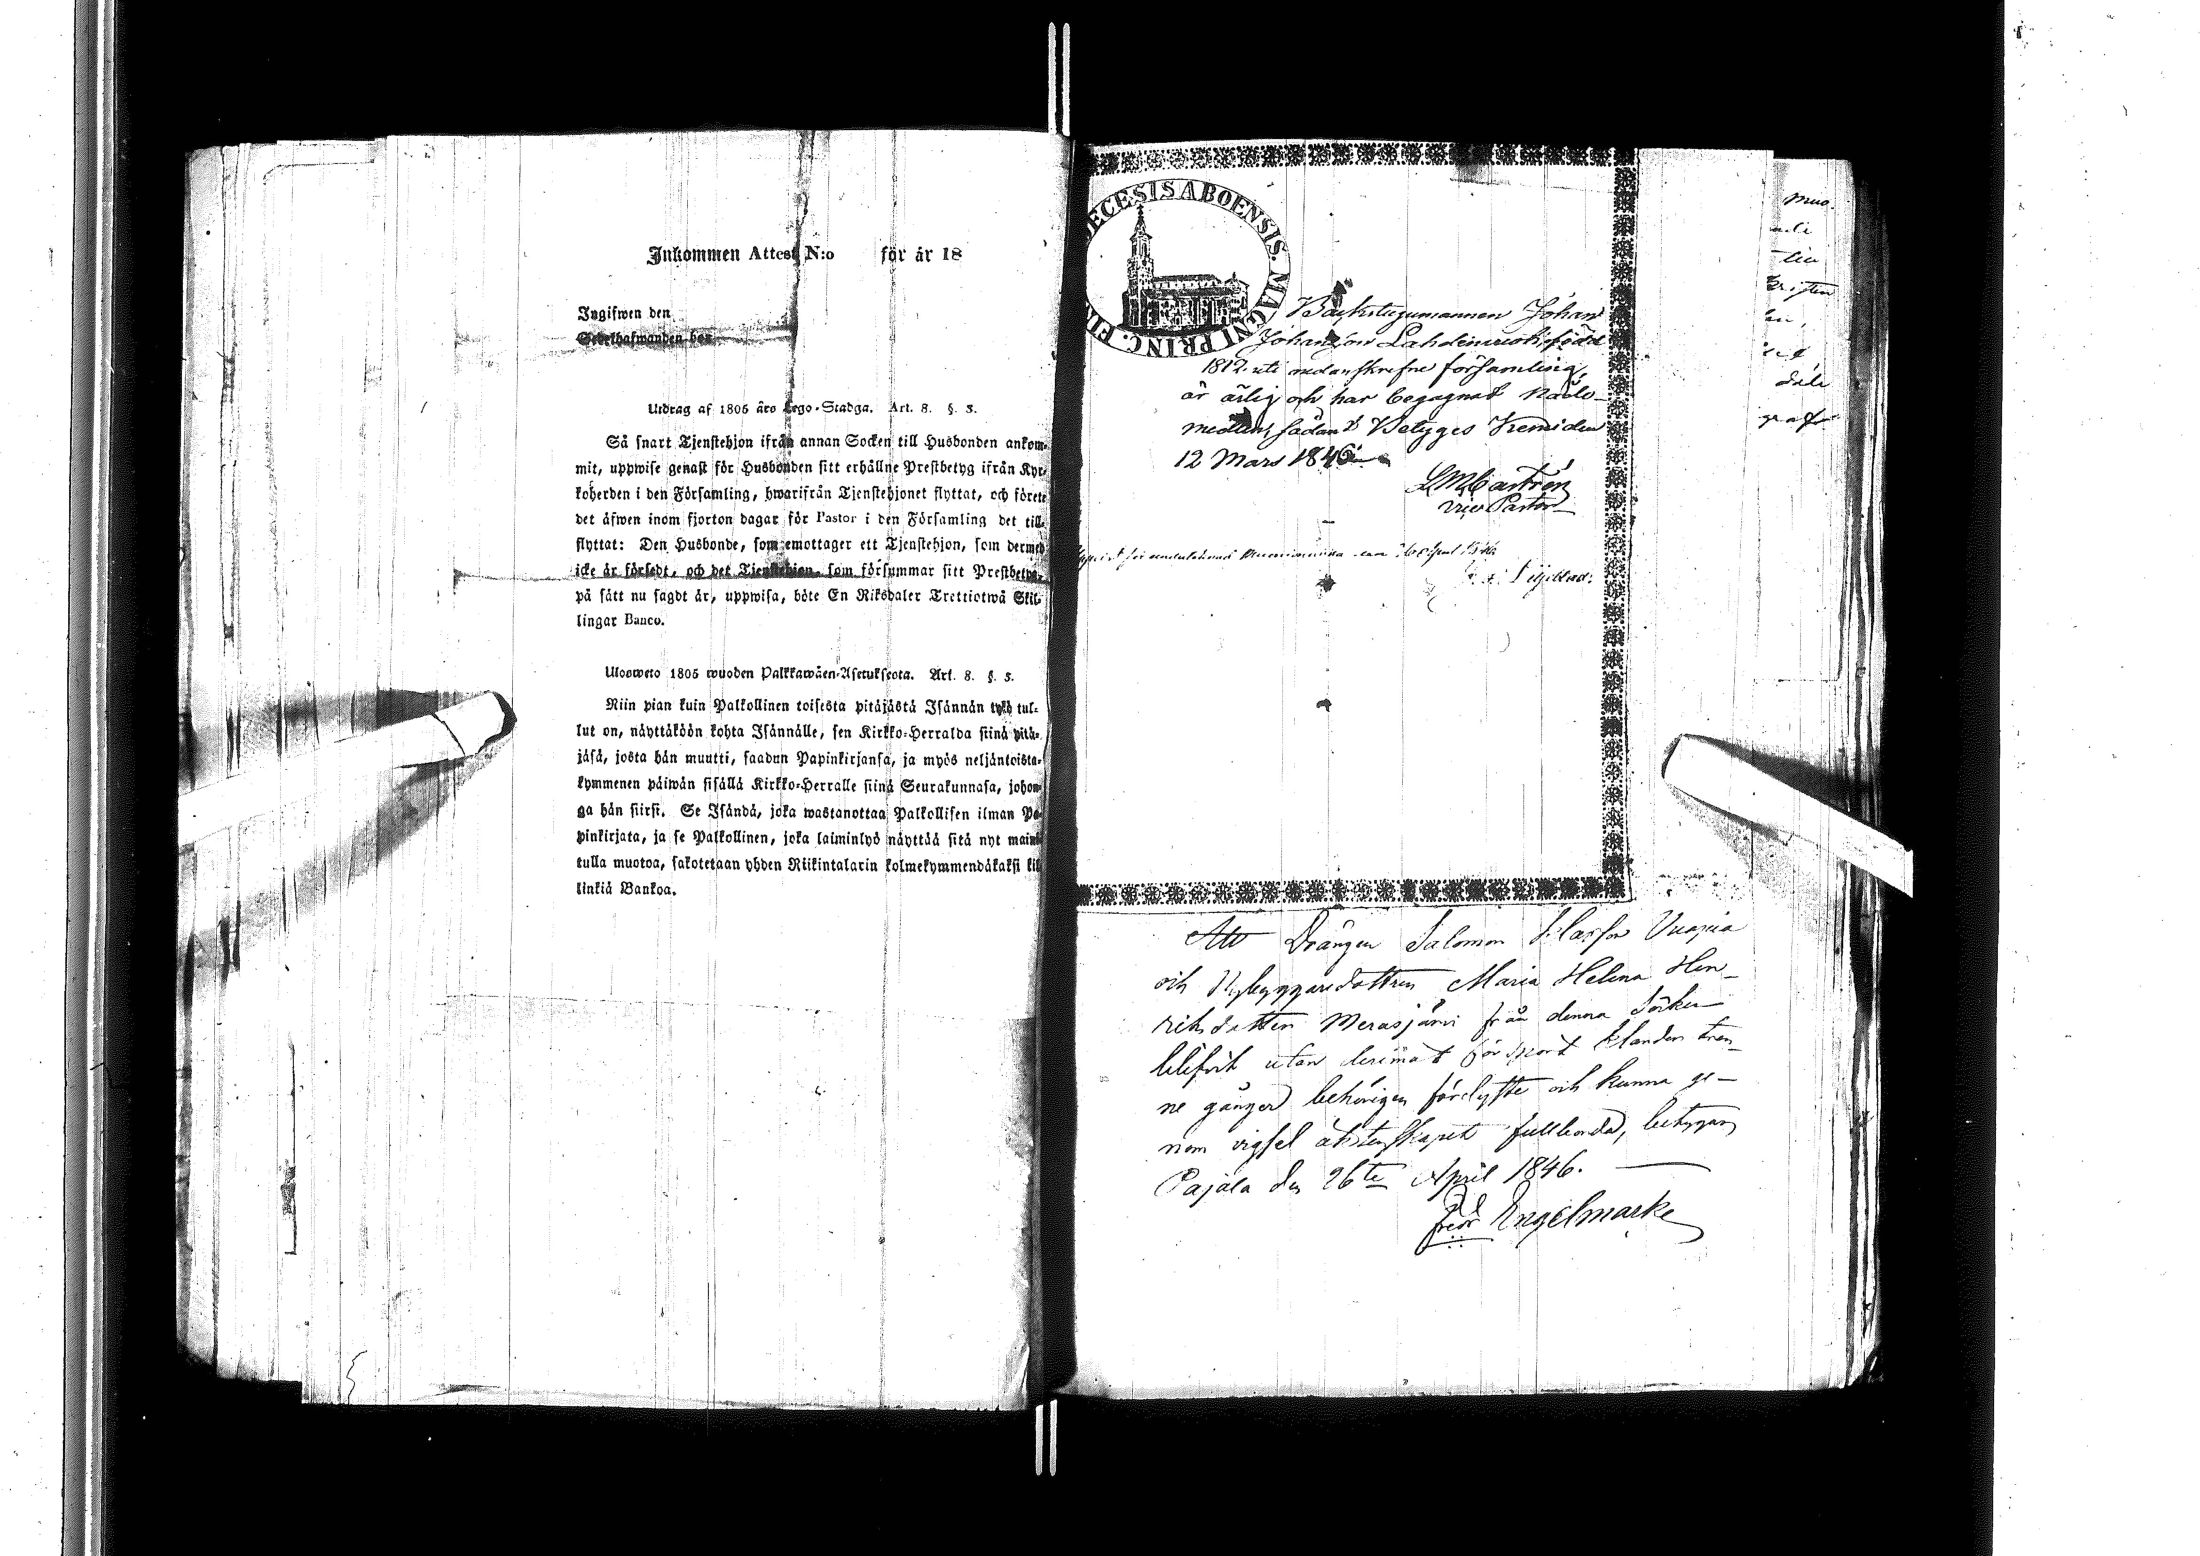 Inkommen Attest N:o för år 18
Ingifwen den
Sedelhafwanden bor
Utdrag af 1805 års Lego-Stadga. Art. 8. §. 3.
Så snart Tjenstehjon ifrån annan Socken till Husbonden ankom-
mit, uppwise genast för Husbonden sitt erhållne Prestbetyg ifrån Kyr-
koherden i den Församling, hwarifrån Tjenstehjonet flyttat, och förete
det äfwen inom fjorton dagar för Pastor i den Församling det till-
flyttat: Den Husbonde, som emottager ett Tjenstehjon, som dermed
icke är försedt, och det Tjenstehjon, som försummar sitt Prestbetyg,
på sätt nu sagdt är, uppwisa, böte En Riksdaler Trettiotwå Skil-
lingar Banco.
Ulosweto 1805 wuoden Palkkawäen-Asetuksesta. Art. 8. §. 3.
Niin pian kuin Palkollinen toisesta pitäjästä Isännän tykö tul-
lut on, näyttäköön kohta Isännälle, sen Kirkko-Herralda siinä pitä-
jäsä, josta hän muutti, saadun Papinkirjansa, ja myös neljäntoista-
kymmenen päiwän sisällä Kirkko-Herralle siinä Seurakunnasa, johon-
ga hän siirsi. Se Isändä, joka wastanottaa Palkollisen ilman Pa-
pinkirjata, ja se Palkollinen, joka laiminlyö näyttää sitä nyt maini-
tulla muotoa, sakotetaan yhden Riikintalarin kolmekymmendäkaksi kil-
linkiä Bankoa.
DECESIS ABOENSIS. MAGNI PRINC. FIN
Backstugumannen Johan
Johansson Lahdenniska född
1812 uti nedanskrefne församling,
är ärlig och har begagnat Nåde-
medlen, sådant Betyges Kemi den
12 Mars 1846
LMCastrén
Vice Pastor
Att Drängen Salomon Olafson Vuopio
och Nybyggaredottren Maria Helena Hen-
riksdotter Merasjärvi från denna Socken
blifvit utan bemärkt försport klander tren-
ne gånger behörigen förelyste och kunna ge-
nom vigsel äktenskapet fullborda, betygar
Pajala den 26te April 1846.
Engelmarke